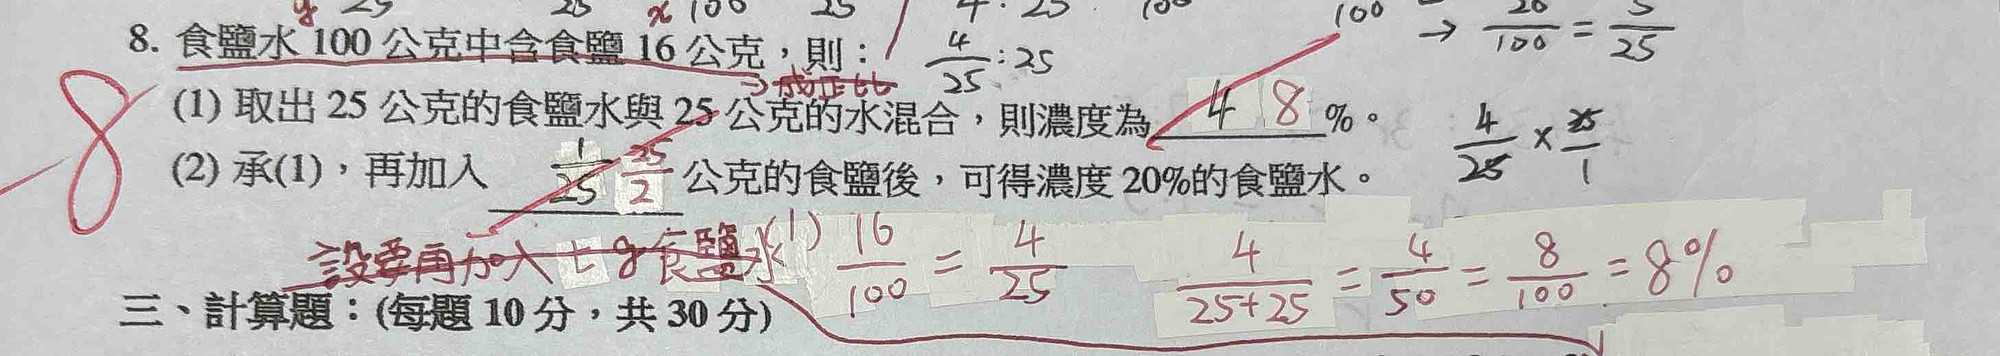 8. 食鹽水 100 公克中含食鹽 16 公克，則： 4/25 : 25 100 → 20/100 = 5/25
→成正比
(1) 取出 25 公克的食鹽水與 25 公克的水混合，則濃度為 4 8 %。 4/25 × 25/1
(2) 承(1)，再加入 1/25 25/2 公克的食鹽後，可得濃度 20%的食鹽水。
-8
設要再加入 t g 食鹽水 (1) 16/100 = 4/25 4/(25+25) = 4/50 = 8/100 = 8%
三、計算題：(每題 10 分，共 30 分)